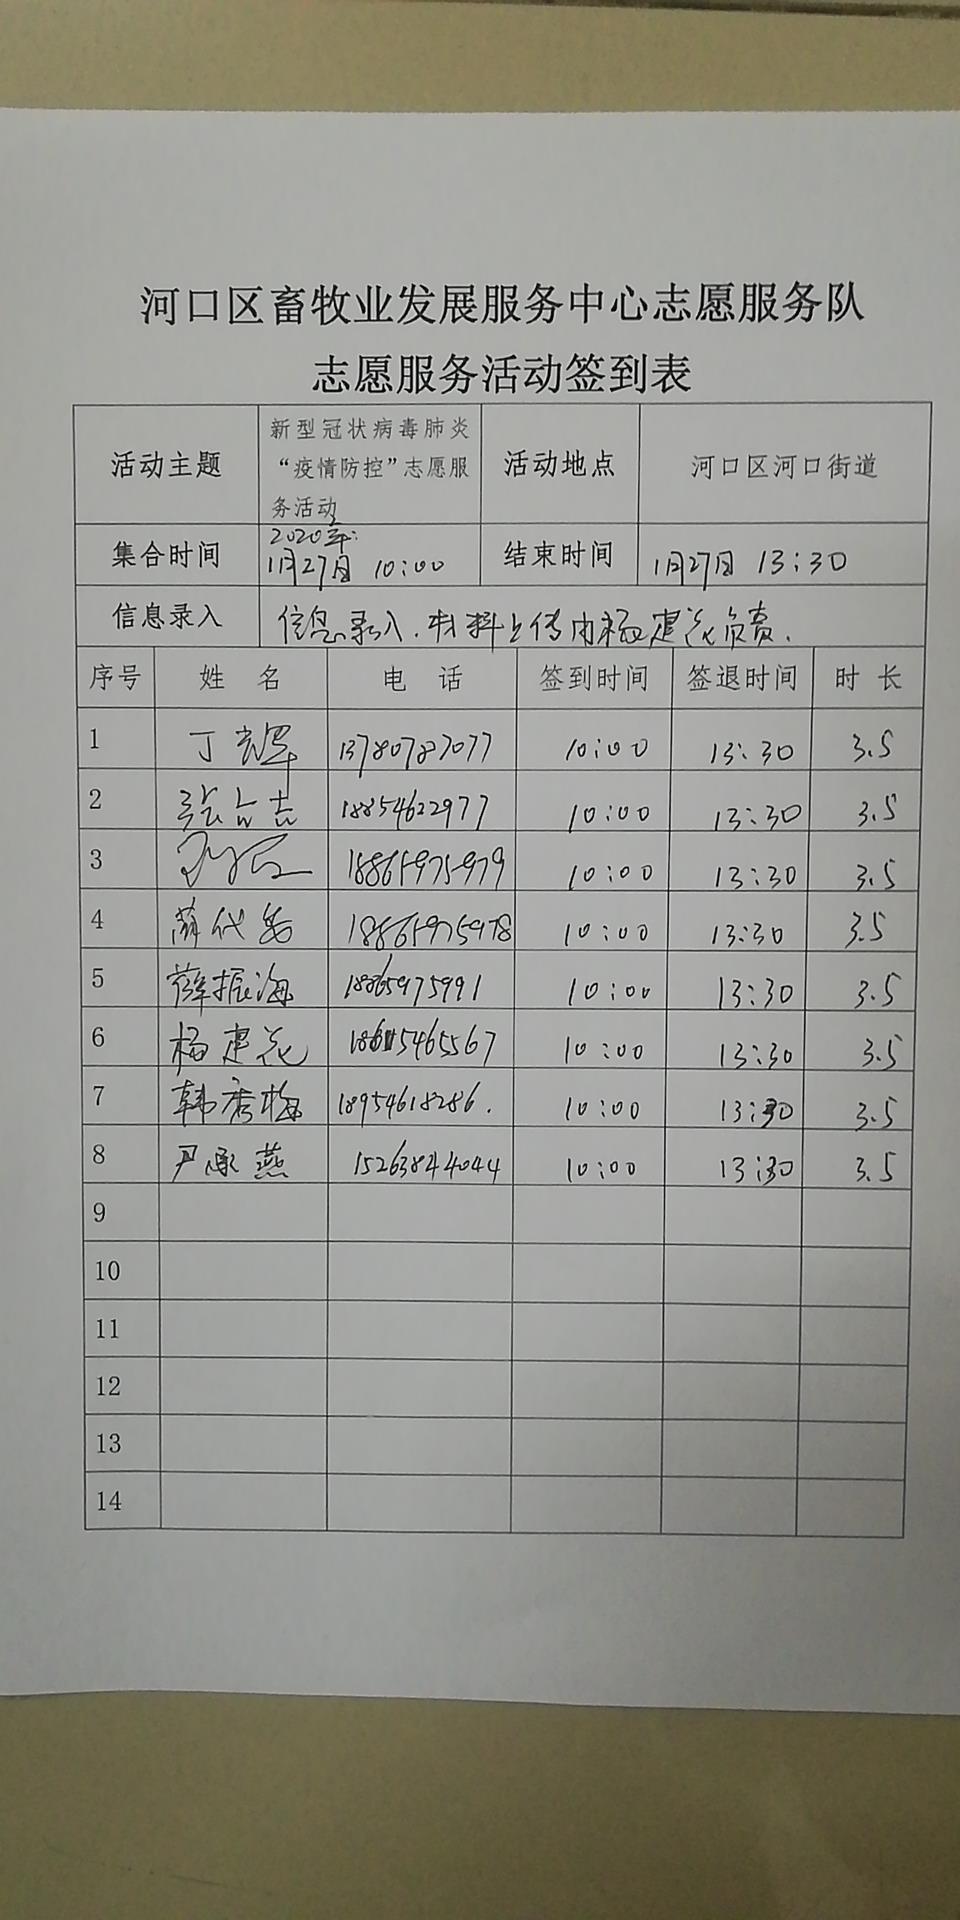 河口区畜牧业发展服务中心志愿服务队
志愿服务活动签到表
活动主题 新型冠状病毒肺炎“疫情防控”志愿服务活动 活动地点 河口区河口街道
集合时间 2020年1月27日 10:00 结束时间 1月27日 13:30
信息录入 信息录入.材料上传由杨建花负责.
序号 姓 名 电 话 签到时间 签退时间 时 长
1 丁光军 13780787077 10:00 13:30 3.5
2 张吉 18854622977 10:00 13:30 3.5
3 18865975979 10:00 13:30 3.5
4 薛代 18865975978 10:00 13:30 3.5
5 薛振海 18865975991 10:00 13:30 3.5
6 杨建花 5465567 10:00 13:30 3.5
7 韩秀梅 18954618286. 10:00 13:30 3.5
8 尹承燕 15263844044 10:00 13:30 3.5
9
10
11
12
13
14